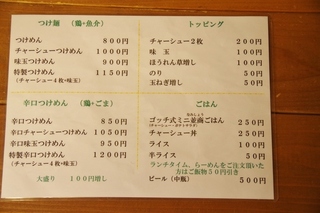 つけ麺 (鶏+魚介)
つけめん 800円
チャーシューつけめん 1000円
味玉つけめん 900円
特製つけめん 1150円
(チャーシュー4枚+味玉)
辛口つけめん (鶏+ごま)
辛口つけめん 850円
辛口チャーシューつけめん 1050円
辛口味玉つけめん 950円
特製辛口つけめん 1200円
(チャーシュー4枚+味玉)
大盛り 100円増し
トッピング
チャーシュー2枚 200円
味玉 100円
ほうれん草増し 100円
のり 50円
玉ねぎ増し 50円
ごはん
ゴッチ式ミニ並商ごはん 250円
チャーシュー丼 250円
ライス 100円
半ライス 50円
ランチタイム、らーめんをご注文頂いた
方はご飯物50円引き
ビール (中瓶) 500円